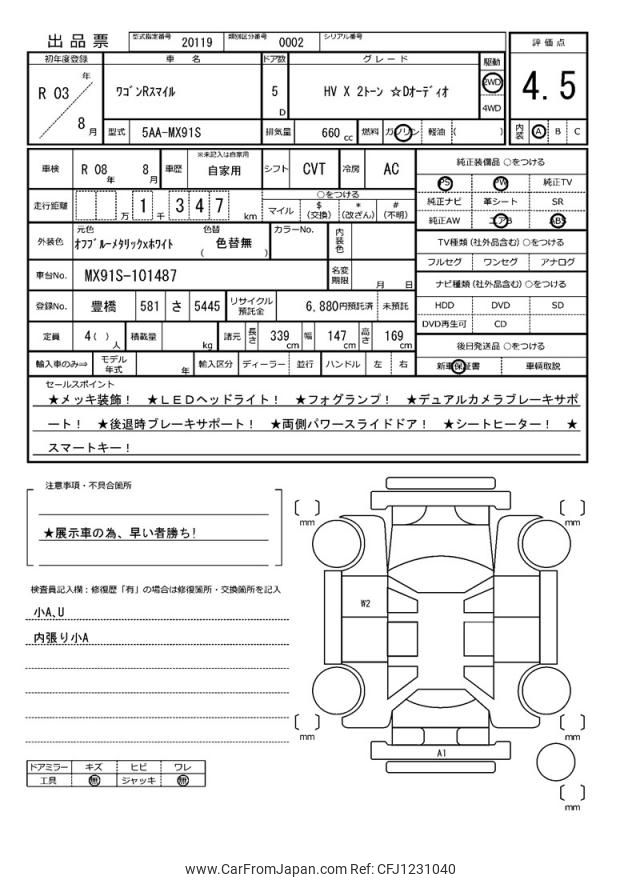 出品票 型式指定番号 20119 類別区分番号 0002 シリアル番号
初年度登録 車名 ドア数 グレード 駆動 評価点
R 03 年 8 月 ワゴンRスマイル 5 D HV X 2トーン ☆Dオーディオ 2WD 4WD 4.5
型式 5AA-MX91S 排気量 660 cc 燃料 ガソリン 軽油 ( ) 内装 A B C
車検 R 08 年 8 月 車歴 ※未記入は自家用 自家用 シフト CVT 冷房 AC
走行距離 万 1 千 3 4 7 km ○をつける
マイル $(交換) *(改ざん) #(不明)
外装色 元色 オフブルーメタリックxホワイト 色替 ( 色替無 ) カラーNo. 内装色
車台No. MX91S-101487 名変期限 月 日
登録No. 豊橋 581 さ 5445 リサイクル預託金 6,880円預託済 未預託
定員 4( ) 人 積載量 kg 諸元 長さ 339 cm 幅 147 cm 高さ 169 cm
輸入車のみ⇒ モデル年式 年 輸入区分 ディーラー 並行 ハンドル 左 右
純正装備品 ○をつける
PS PW 純正TV
純正ナビ 革シート SR
純正AW エアB ABS
TV種類(社外品含む)○をつける
フルセグ ワンセグ アナログ
ナビ種類(社外品含む)○をつける
HDD DVD SD
DVD再生可 CD
後日発送品 ○をつける
新車保証書 車輌取説
セールスポイント
★メッキ装飾! ★LEDヘッドライト! ★フォグランプ! ★デュアルカメラブレーキサポ
ート! ★後退時ブレーキサポート! ★両側パワースライドドア! ★シートヒーター! ★
スマートキー!
注意事項・不具合箇所
★展示車の為、早い者勝ち!
検査員記入欄:修復歴「有」の場合は修復箇所・交換箇所を記入
小A、U
内張り小A
ドアミラー キズ ヒビ ワレ
工具 無 ジャッキ 無
[ ] mm
[ ] mm
W2
[ ] mm
[ ] mm
A1
[ ] mm
www.CarFromJapan.com Ref: CFJ1231040